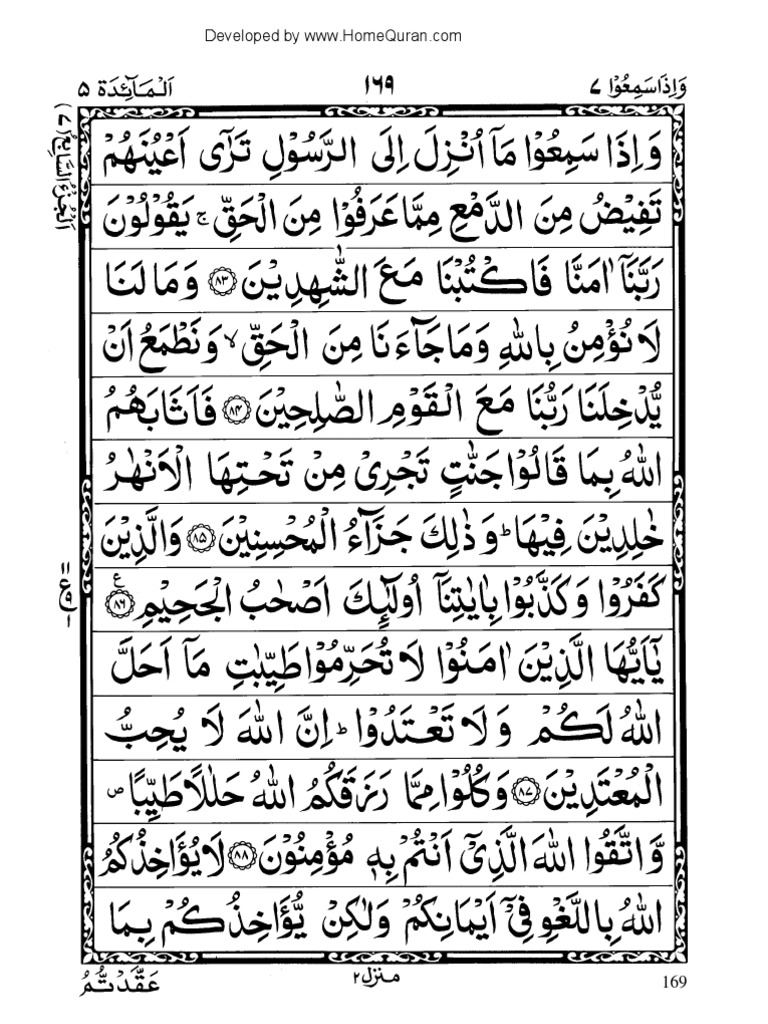 Developed by www.HomeQuran.com
وَاِذَا سَمِعُوْا ٧
١٦٩
اَلْمَآئِدَة ٥
اَلْجُزْءُ السَّابِعُ (٧)
وَاِذَا سَمِعُوْا مَآ اُنْزِلَ اِلَى الرَّسُوْلِ تَرٰٓى اَعْيُنَهُمْ
تَفِيْضُ مِنَ الدَّمْعِ مِمَّا عَرَفُوْا مِنَ الْحَقِّ ۚ يَقُوْلُوْنَ
رَبَّنَآ اٰمَنَّا فَاكْتُبْنَا مَعَ الشّٰهِدِيْنَ ﴿٨٣﴾ وَمَا لَنَا
لَا نُؤْمِنُ بِاللّٰهِ وَمَا جَآءَنَا مِنَ الْحَقِّ ۙ وَنَطْمَعُ اَنْ
يُّدْخِلَنَا رَبُّنَا مَعَ الْقَوْمِ الصّٰلِحِيْنَ ﴿٨٤﴾ فَاَثَابَهُمُ
اللّٰهُ بِمَا قَالُوْا جَنّٰتٍ تَجْرِىْ مِنْ تَحْتِهَا الْاَنْهٰرُ
خٰلِدِيْنَ فِيْهَا ؕ وَذٰلِكَ جَزَآءُ الْمُحْسِنِيْنَ ﴿٨٥﴾ وَالَّذِيْنَ
كَفَرُوْا وَكَذَّبُوْا بِاٰيٰتِنَآ اُولٰٓئِكَ اَصْحٰبُ الْجَحِيْمِ ﴿٨٦﴾ ع
يٰٓاَيُّهَا الَّذِيْنَ اٰمَنُوْا لَا تُحَرِّمُوْا طَيِّبٰتِ مَآ اَحَلَّ
اللّٰهُ لَكُمْ وَلَا تَعْتَدُوْا ؕ اِنَّ اللّٰهَ لَا يُحِبُّ
الْمُعْتَدِيْنَ ﴿٨٧﴾ وَكُلُوْا مِمَّا رَزَقَكُمُ اللّٰهُ حَلٰلًا طَيِّبًا ۖ
وَّاتَّقُوا اللّٰهَ الَّذِىْٓ اَنْتُمْ بِهٖ مُؤْمِنُوْنَ ﴿٨٨﴾ لَا يُؤَاخِذُكُمُ
اللّٰهُ بِاللَّغْوِ فِىْٓ اَيْمَانِكُمْ وَلٰكِنْ يُّؤَاخِذُكُمْ بِمَا
عَقَّدْتُّمُ
منزل ٢
169